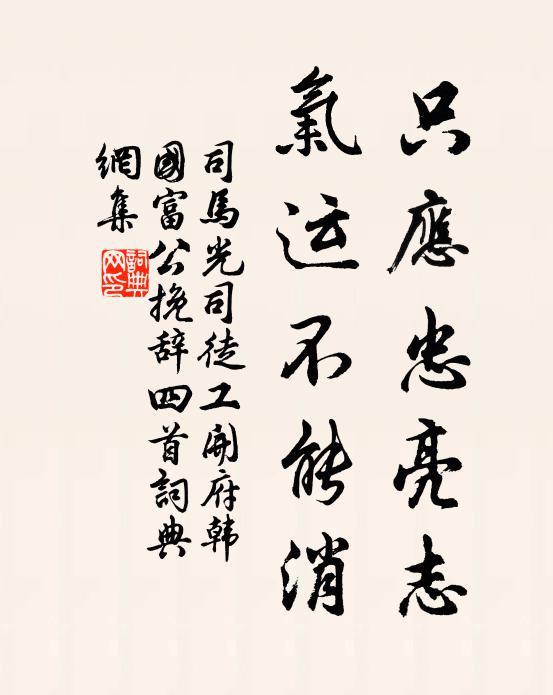 只應忠亮志
氣运不能消
司馬光司徒工開府韩
國富公挽辞四首詞典
網集
詞典网印